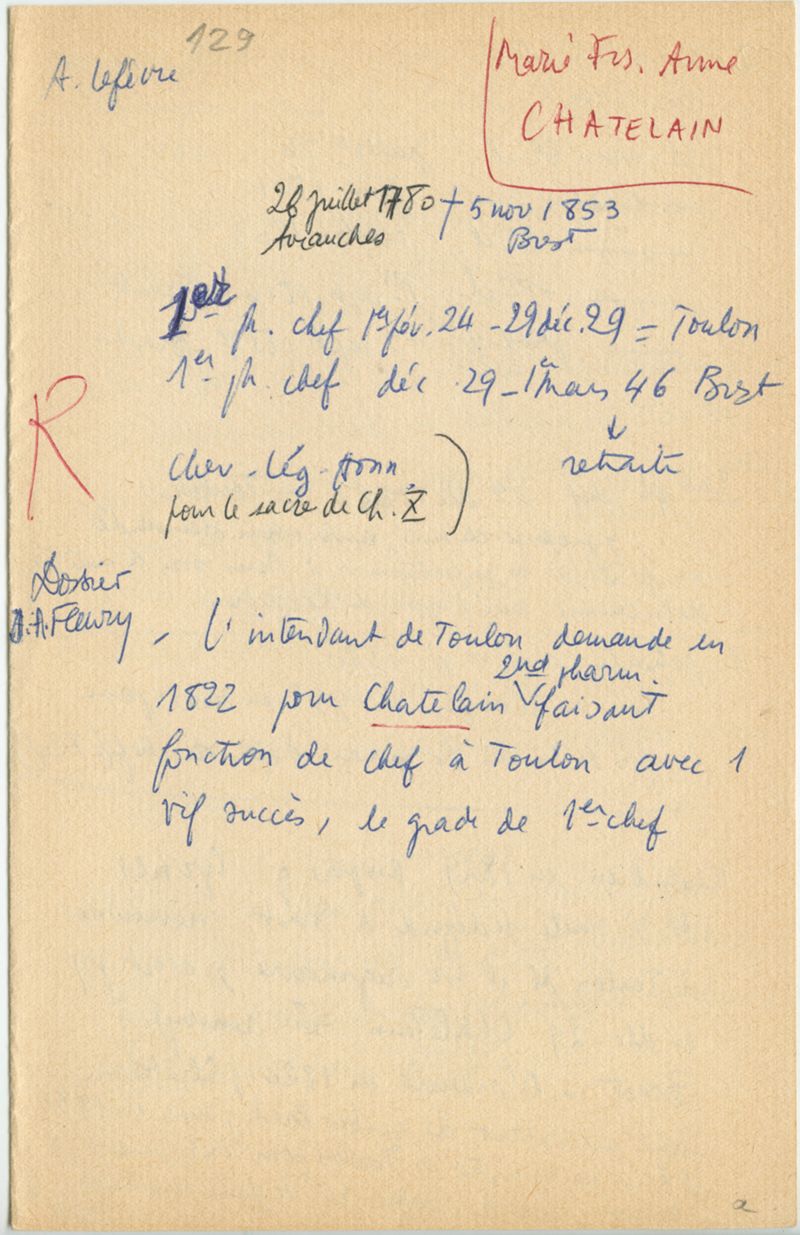 129
A. Lefèvre
Marie Frs. Anne
CHATELAIN
26 juillet 1780 + 5 nov 1853
Avranches Brest
1er ph. chef 1er fév. 24 - 29 déc. 29 = Toulon
1er ph. chef déc. 29 - 1er Mars 46 Brest
↓
retraite
R
Chev. Lég. Honn.
pour le sacre de Ch. X
Dossier
A. Fleury
- L'intendant de Toulon demande en
1822 pour Chatelain 2nd pharm. faisant
fonction de chef à Toulon avec 1
vif succès, le grade de 1er chef
a